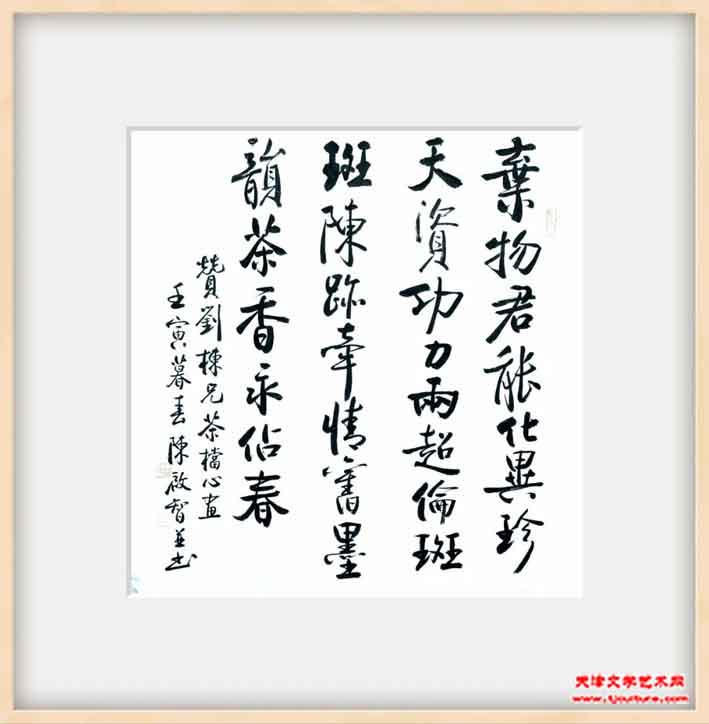 棄物君能化異珍
天資功力兩超倫斑
斑陳跡牽情舊墨
韻茶香永佔春
贊劉棟兄茶檔心畫
壬寅暮春陳啟智並書
天津文学艺术网
www.tjculture.com